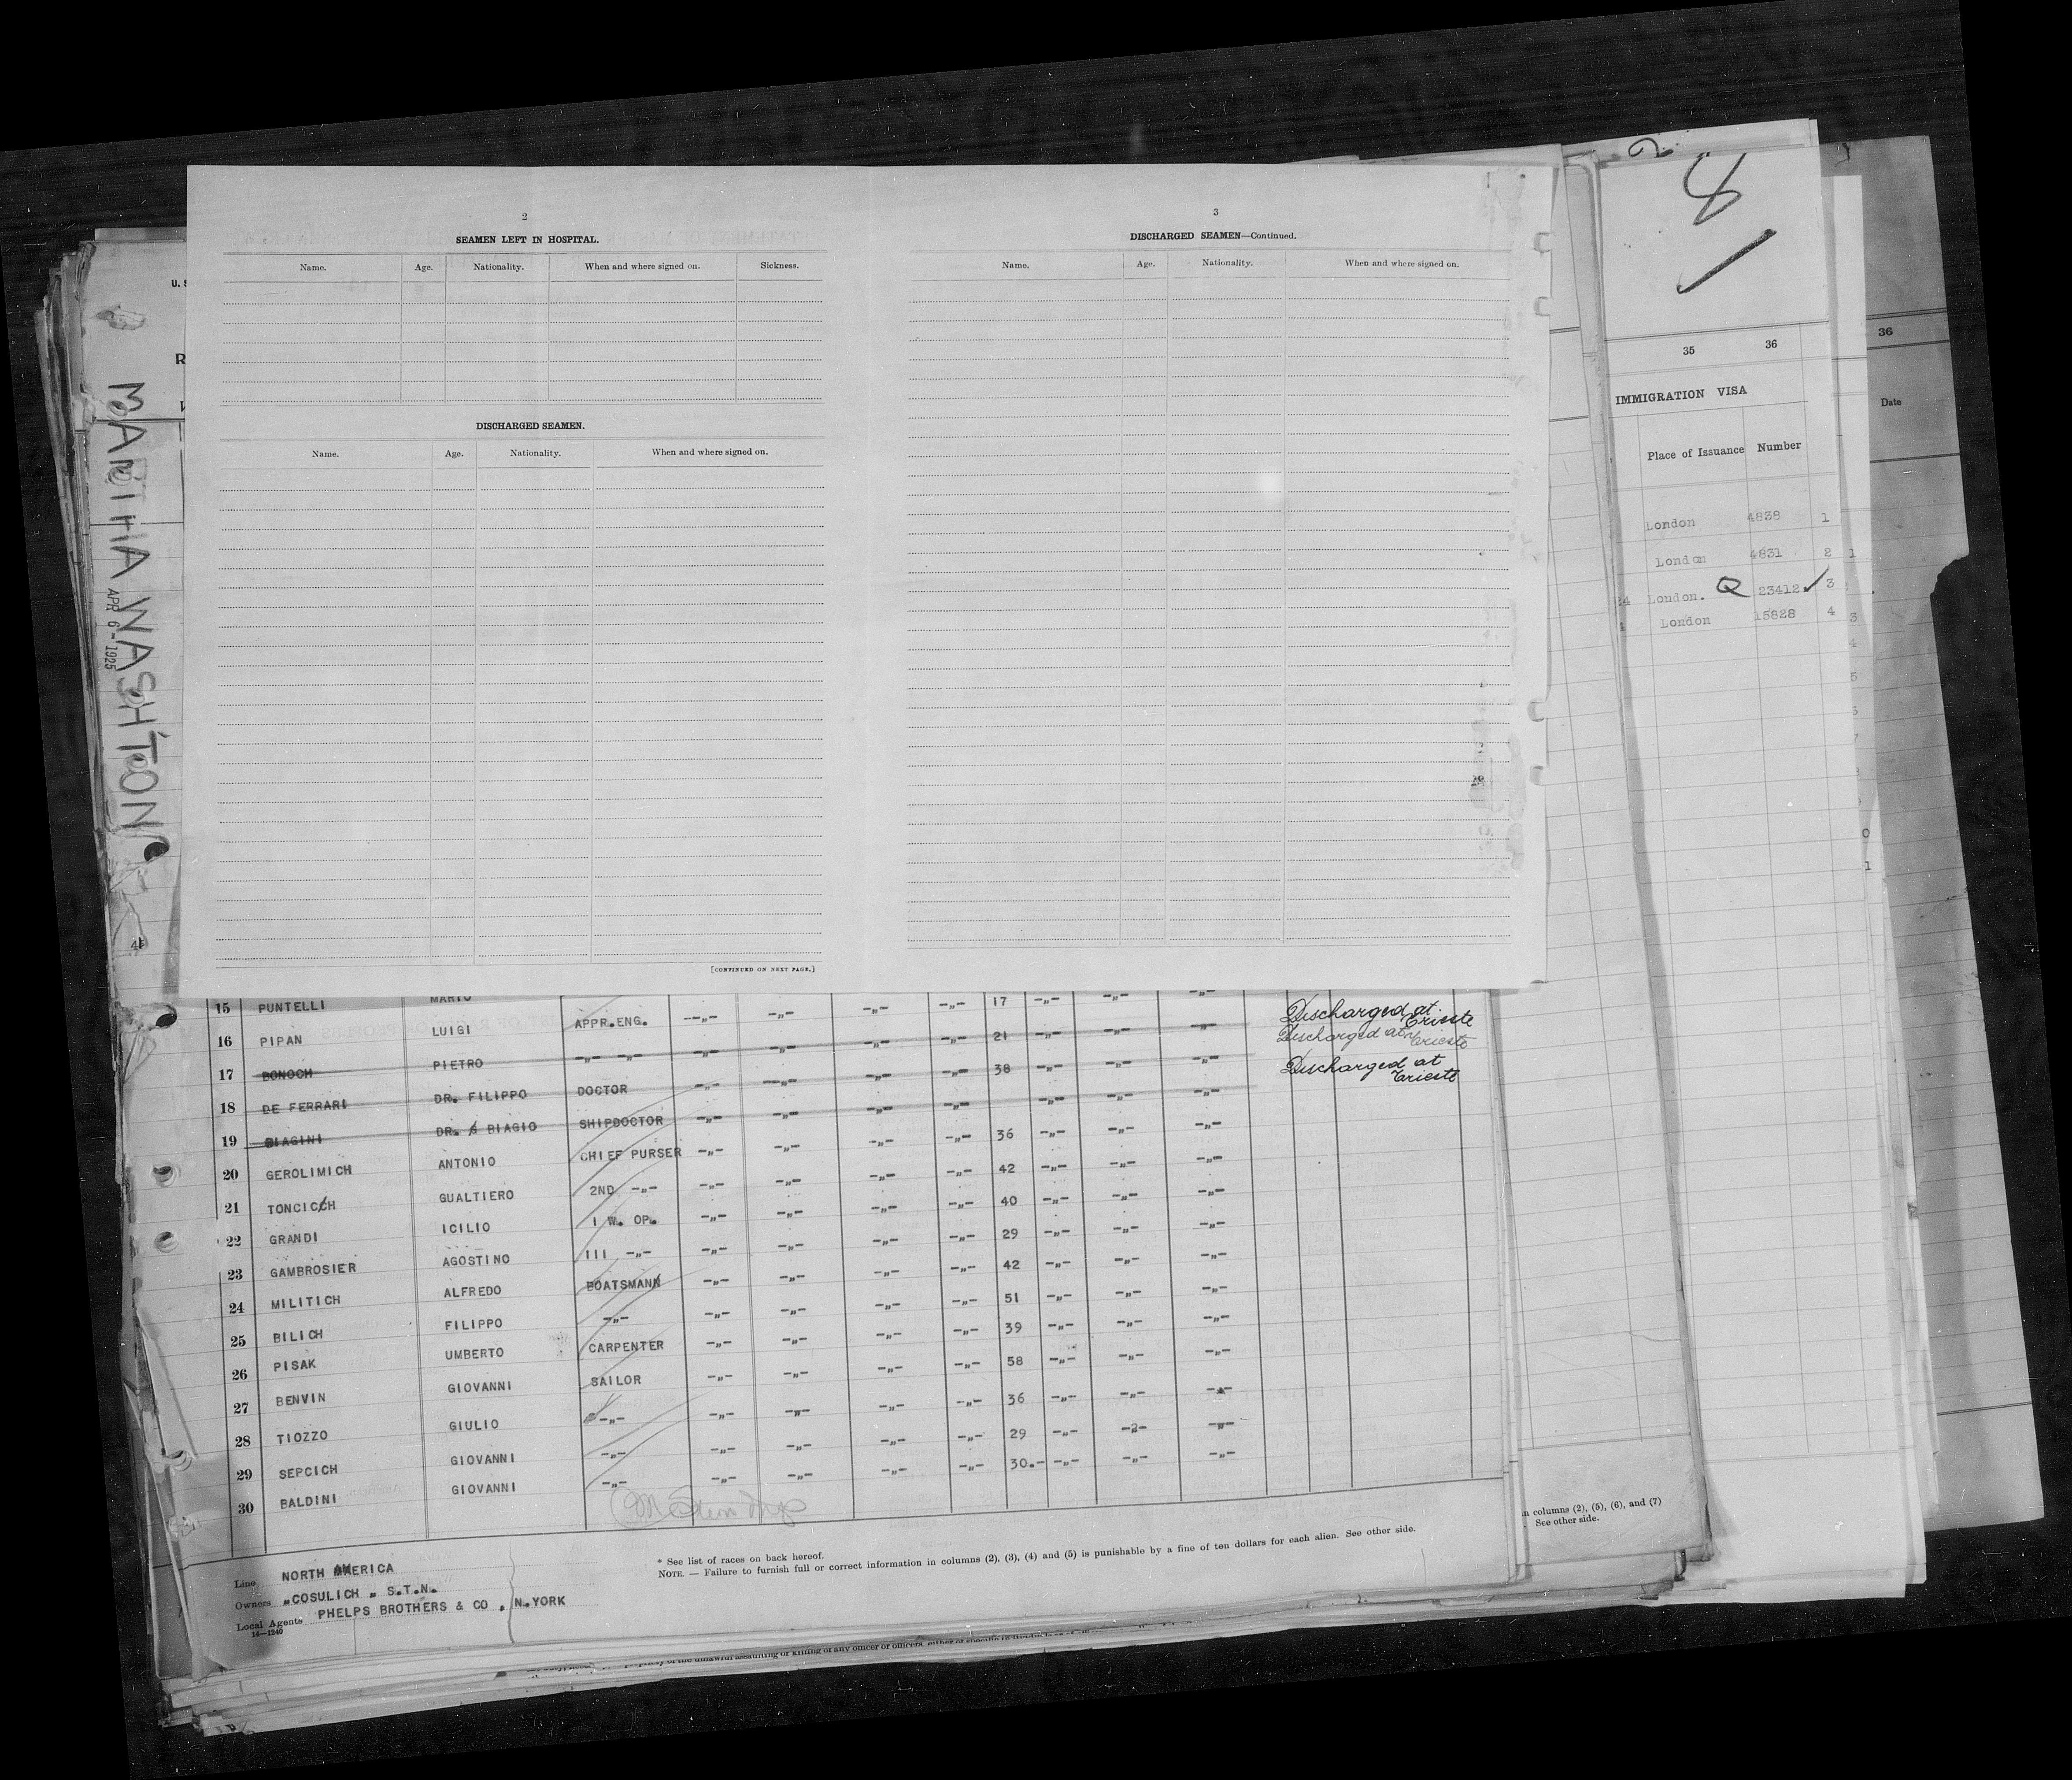 2
SEAMEN LEFT IN HOSPITAL.
Name. Age. Nationality. When and where signed on. Sickness.
DISCHARGED SEAMEN.
Name. Age. Nationality. When and where signed on.
[CONTINUED ON NEXT PAGE.]
3
DISCHARGED SEAMEN—Continued.
Name. Age. Nationality. When and where signed on.
MARTHA WASHINGTON
APR 6-1925
8
35 36
IMMIGRATION VISA
Place of Issuance Number
London 4838 1
London 4831 2
24 London. Q 23412 ✓ 3
London 15828 4
36
Date
15 PUNTELLI MARIO -„- -„- -„- -„- 17 -„- -„- -„-
16 PIPAN LUIGI APPR.ENG. -„- -„- -„- -„- 21 -„- -„- -„- Discharged at Trieste
17 BONOCH PIETRO -„- -„- -„- -„- -„- -„- 38 -„- -„- -„- Discharged at Trieste
18 DE FERRARI DR. FILIPPO DOCTOR -„- -„- -„- -„- -„- -„- -„- Discharged at Trieste
19 BIAGINI DR. BIAGIO SHIPDOCTOR -„- -„- -„- -„- 36 -„- -„- -„-
20 GEROLIMICH ANTONIO CHIEF PURSER -„- -„- -„- -„- 42 -„- -„- -„-
21 TONCICH GUALTIERO 2ND -„- -„- -„- -„- -„- 40 -„- -„- -„-
22 GRANDI ICILIO I W. OP. -„- -„- -„- -„- 29 -„- -„- -„-
23 GAMBROSIER AGOSTINO III -„- -„- -„- -„- -„- 42 -„- -„- -„-
24 MILITICH ALFREDO BOATSMANN -„- -„- -„- -„- 51 -„- -„- -„-
25 BILICH FILIPPO -„- -„- -„- -„- -„- 39 -„- -„- -„-
26 PISAK UMBERTO CARPENTER -„- -„- -„- -„- 58 -„- -„- -„-
27 BENVIN GIOVANNI SAILOR -„- -„- -„- -„- 36 -„- -„- -„-
28 TIOZZO GIULIO -„- -„- -„- -„- -„- 29 -„- -„- -„-
29 SEPCICH GIOVANNI -„- -„- -„- -„- -„- 30.- -„- -„- -„-
30 BALDINI GIOVANNI -„- -„- -„-
Line NORTH AMERICA
Owners „COSULICH „ S.T.N.
Local Agents PHELPS BROTHERS & CO , N.YORK
14—1240
* See list of races on back hereof.
NOTE. — Failure to furnish full or correct information in columns (2), (3), (4) and (5) is punishable by a fine of ten dollars for each alien. See other side.
n columns (2), (5), (6), and (7)
See other side.